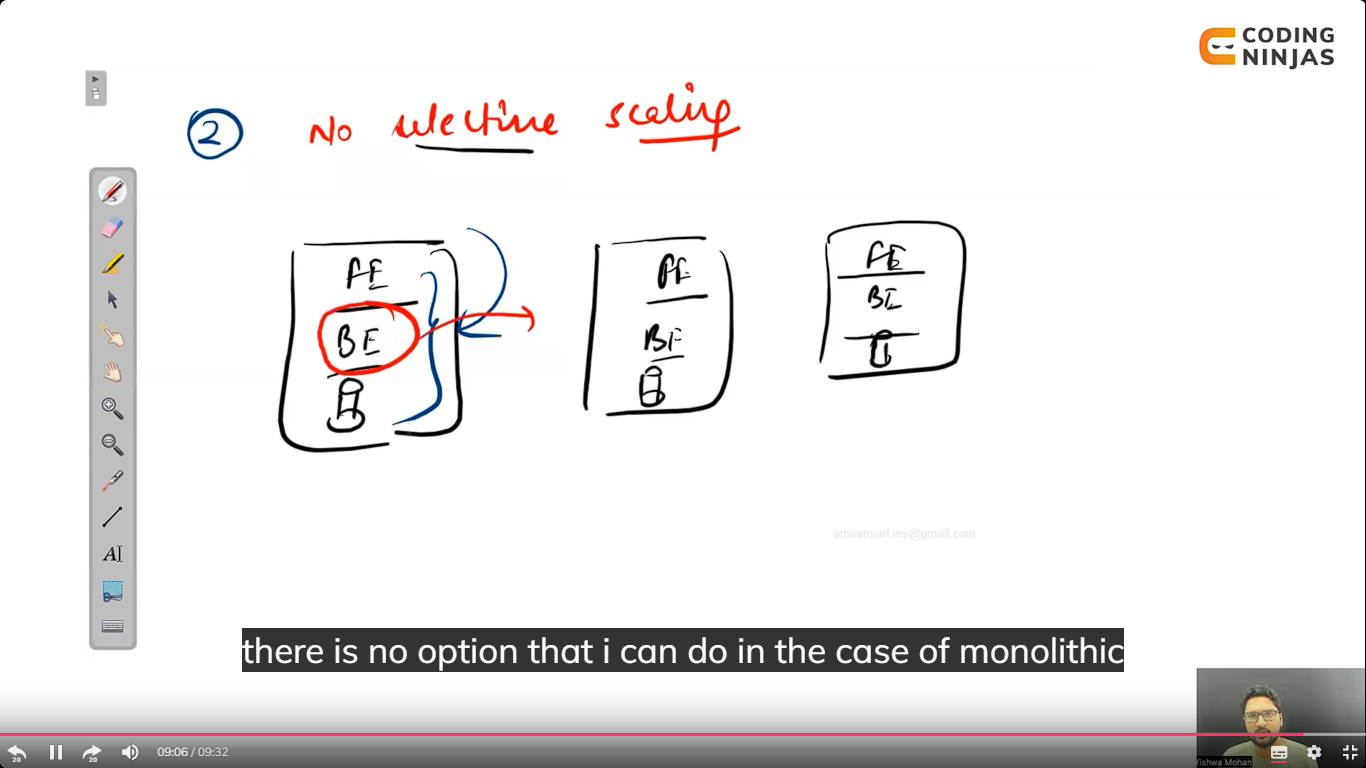 CODING
NINJAS
2 No selective scaling
FE FE FE
BE BE BE
amiransari.my@gmail.com
there is no option that i can do in the case of monolithic
AI
20 20 09:06 / 09:32
Vishwa Mohan